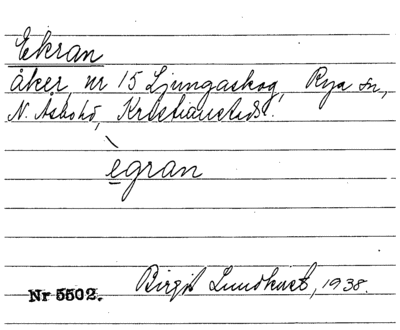 Ekran
åker, nr 15 Ljungaskog, Rya sn,
N. Åsbohd, Kristianstads l.
ègran
Nr 5502. Birgit Lundkvist, 1938.